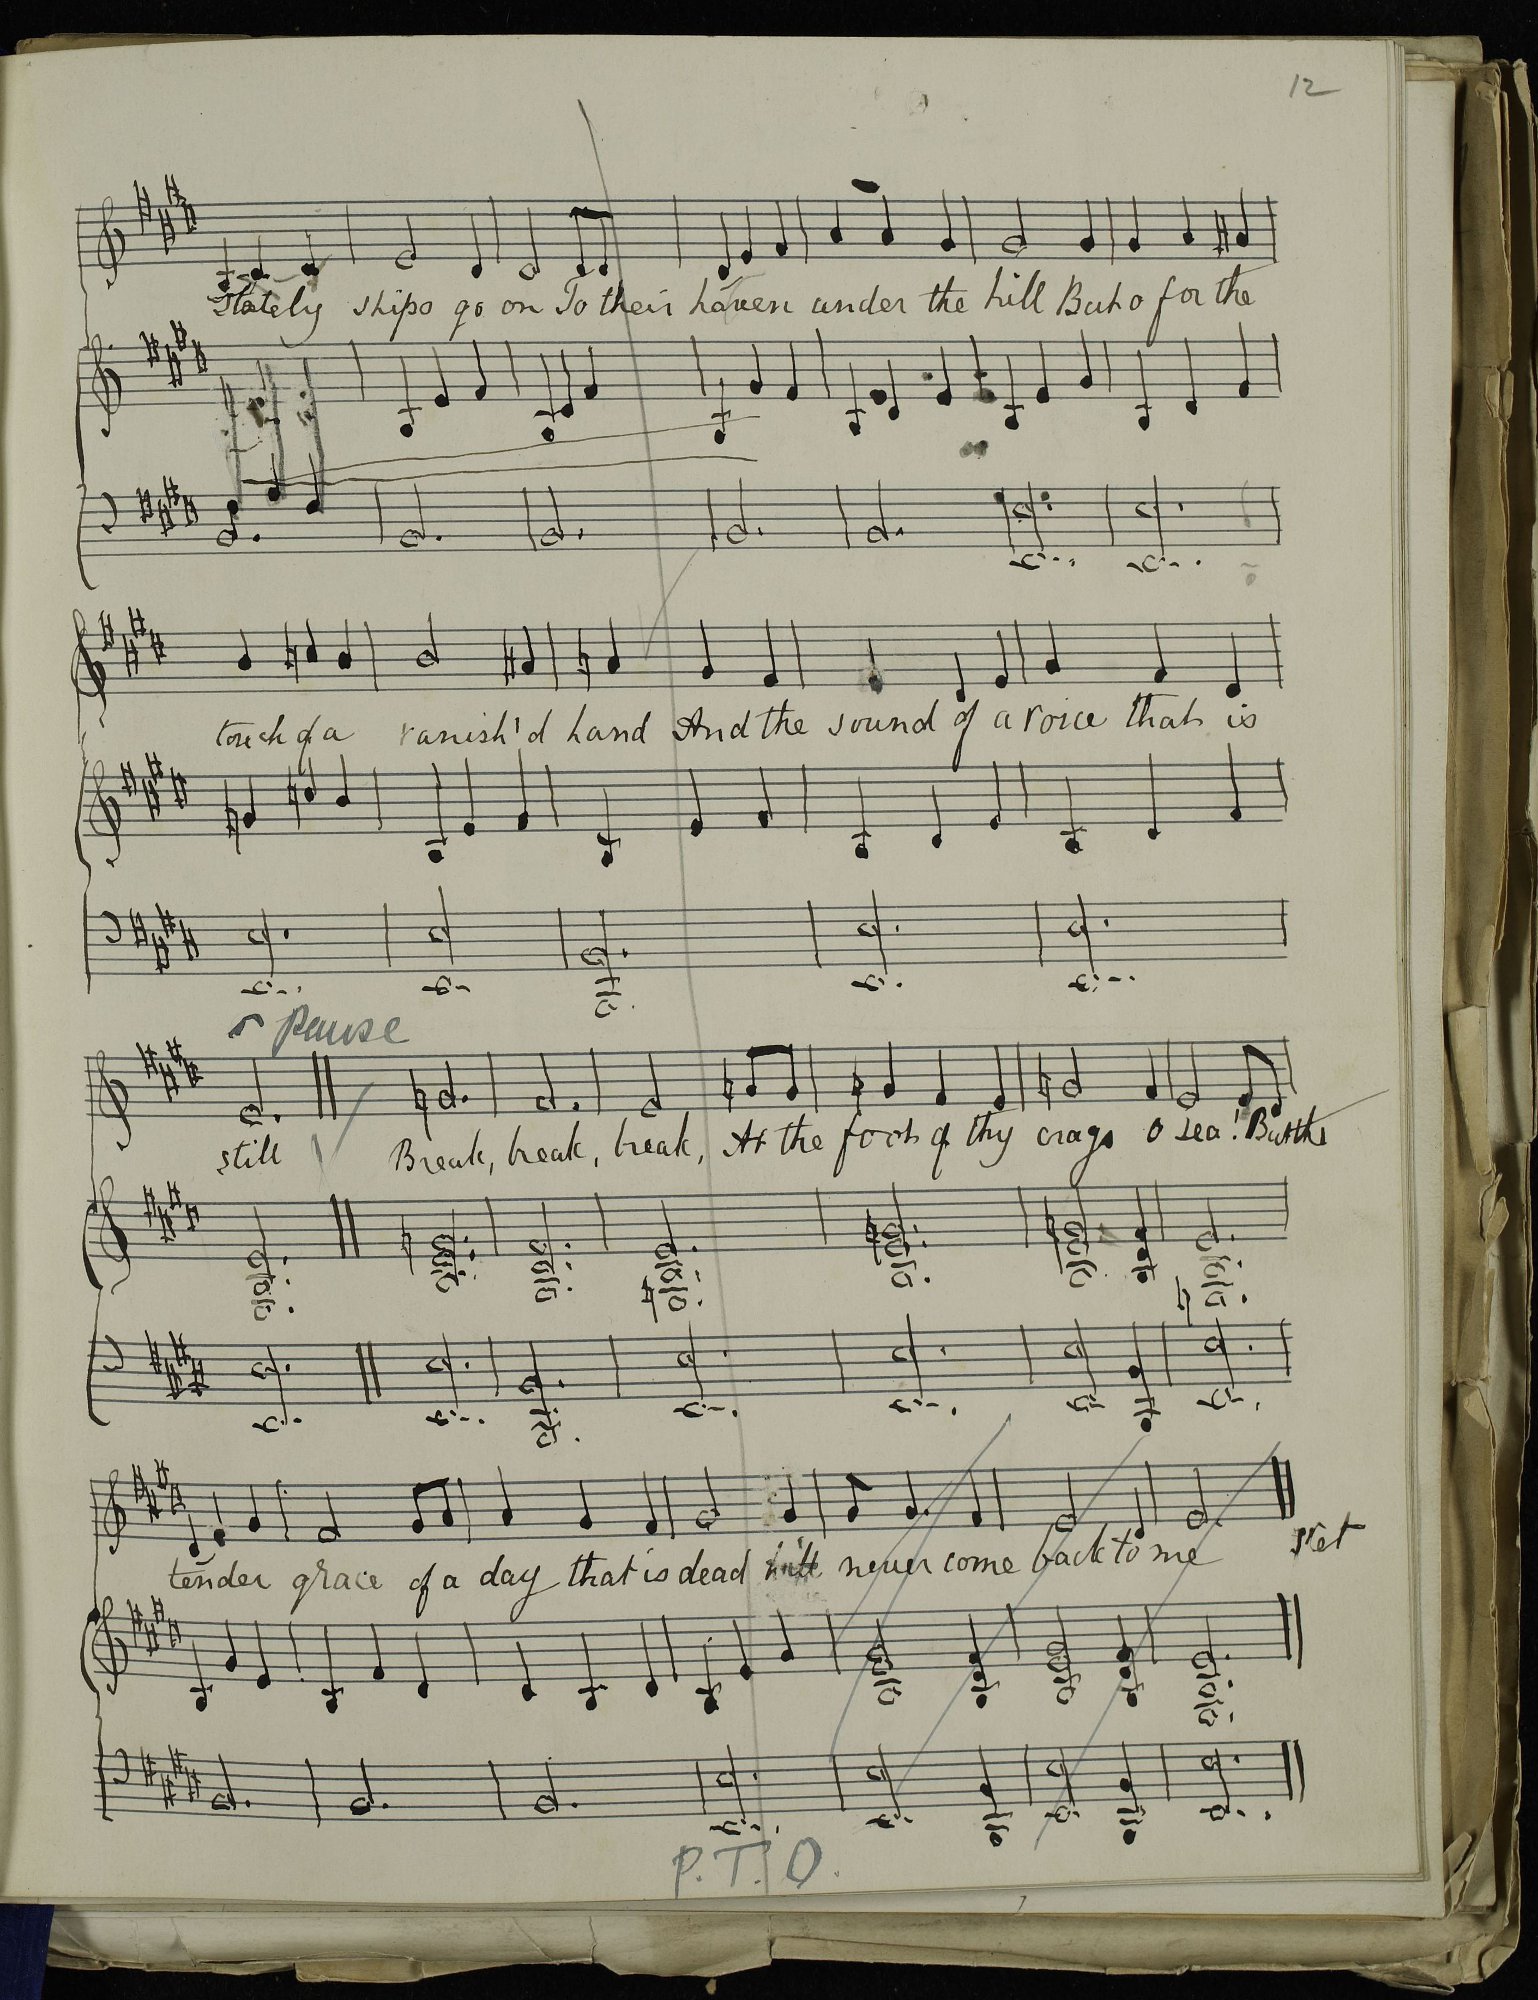 12
Stately ships go on To their haven under the hill But o for the
touch of a vanish'd hand And the sound of a voice that is
Pause
still Break, break, break, At the foot of thy crags O sea! But the
tender grace of a day that is dead will never come back to me
P.T.O.